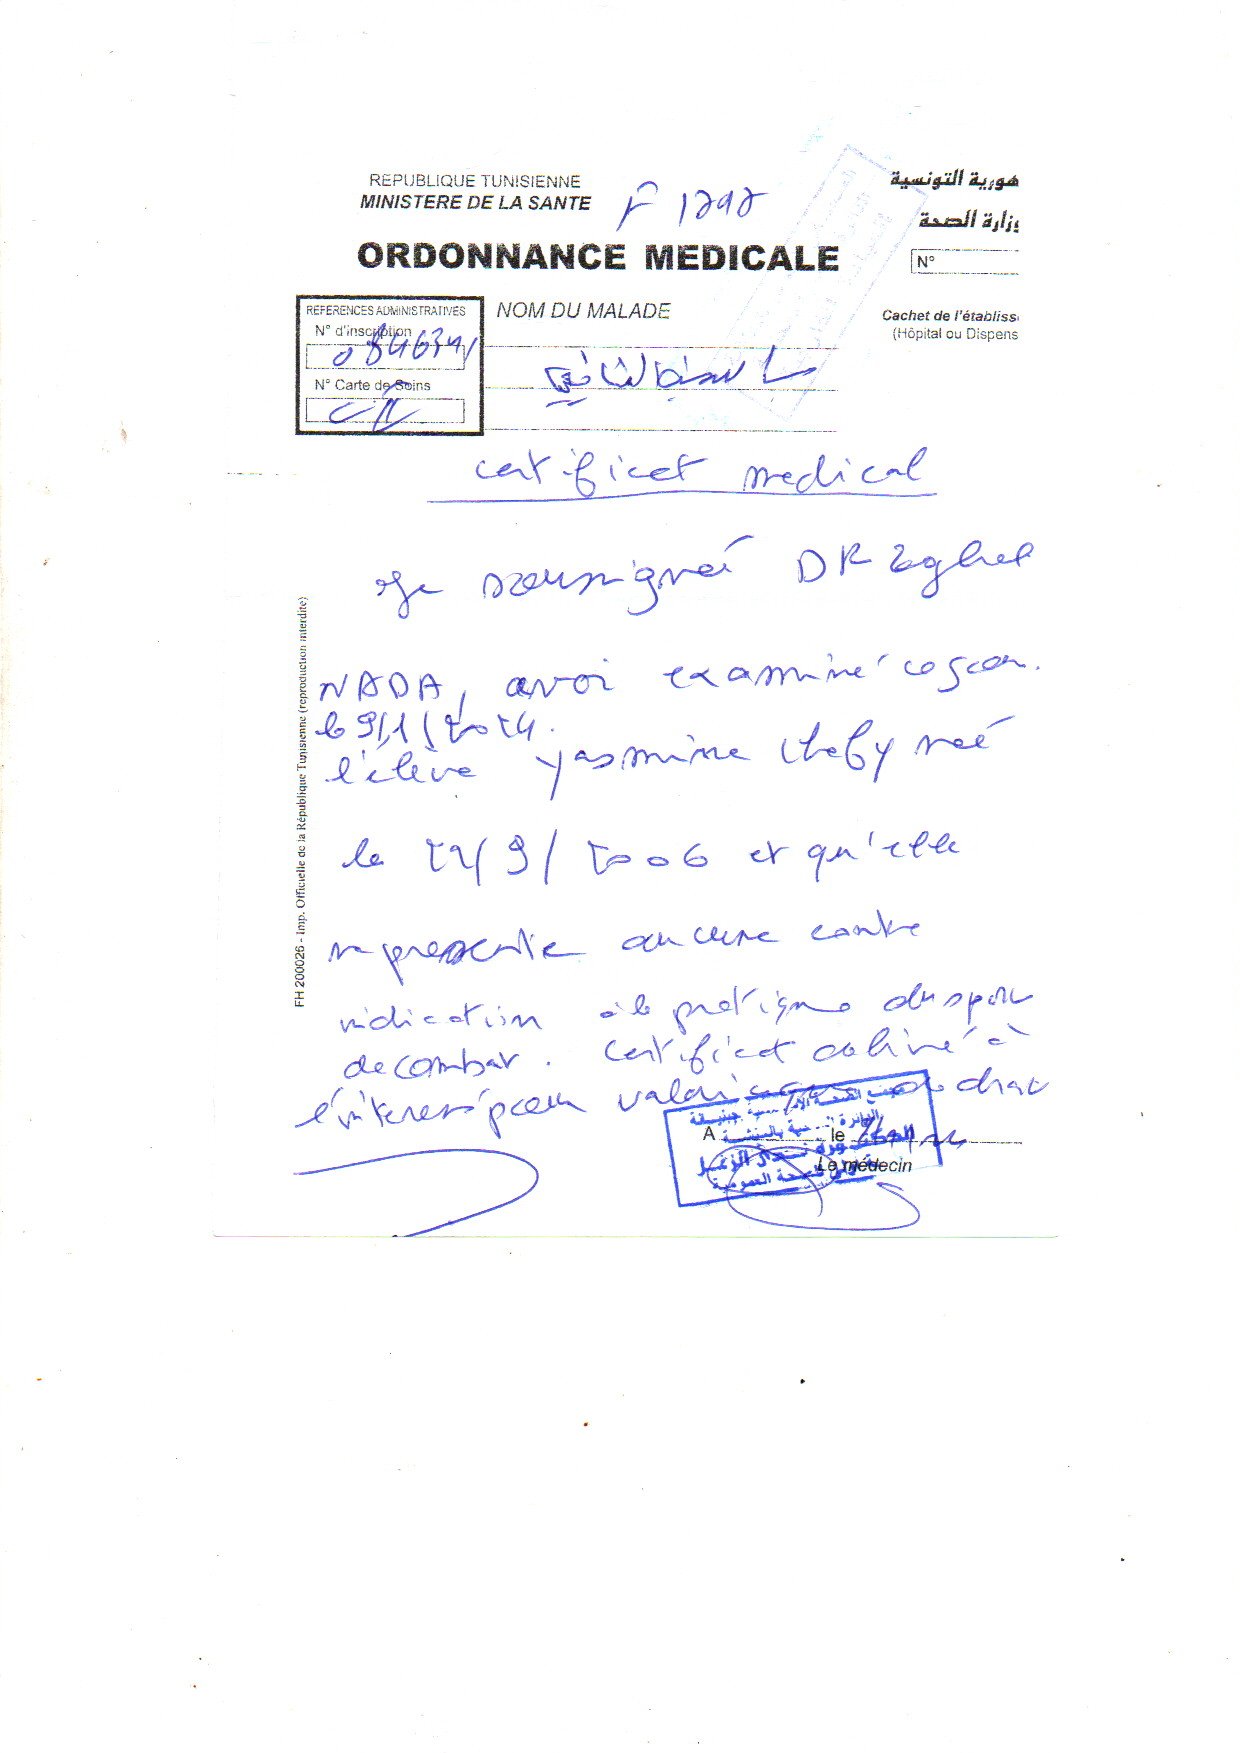 REPUBLIQUE TUNISIENNE
MINISTERE DE LA SANTE
F 1292
هورية التونسية
وزارة الصحة
ORDONNANCE MEDICALE
N°
REFERENCES ADMINISTRATIVES
N° d'inscription
N° Carte de Soins
NOM DU MALADE
ياسمين الشافي
Cachet de l'établiss
(Hôpital ou Dispens
certificat medical
Je soussigné DR Zghel
NADA, avoir examiné ce jour
le 9/1/2024.
l'élève yasmine Chefy née
le 22/9/2006 et qu'elle
ne presente aucune contre
indication à la pratique du sport
de combat. certificat délivré à
l'interessé pour valoir de droit
A le
Le médecin
FH 200026 - Imp. Officielle de la République Tunisienne (reproduction interdite)